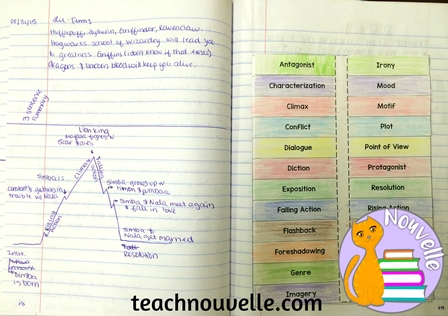 05/31/15
Lit. Terms
Hufflepuff, Slytherin, Gryffindor, Ravenclaw.
Hogwarts school of wizardry will lead you
to greatness. Griffins (I don't know if that exists)
dragons, & unicorn blood will keep you alive.
3 sentence
summary
Lion King
Mufasa
Scar
Climax
Falling Action
Simba is
constantly getting in
trouble w/ Nala
Rising Action
Simba grows up w/
Timon & Pumbaa
Simba & Nala meet again
& fall in love
Simba &
Nala get married
Resolution
Simba
is born
Antagonist
Characterization
Climax
Conflict
Dialogue
Diction
Exposition
Falling Action
Flashback
Foreshadowing
Genre
Imagery
Irony
Mood
Motif
Plot
Point of View
Protagonist
Resolution
Rising Action
Nouvelle
teachnouvelle.com